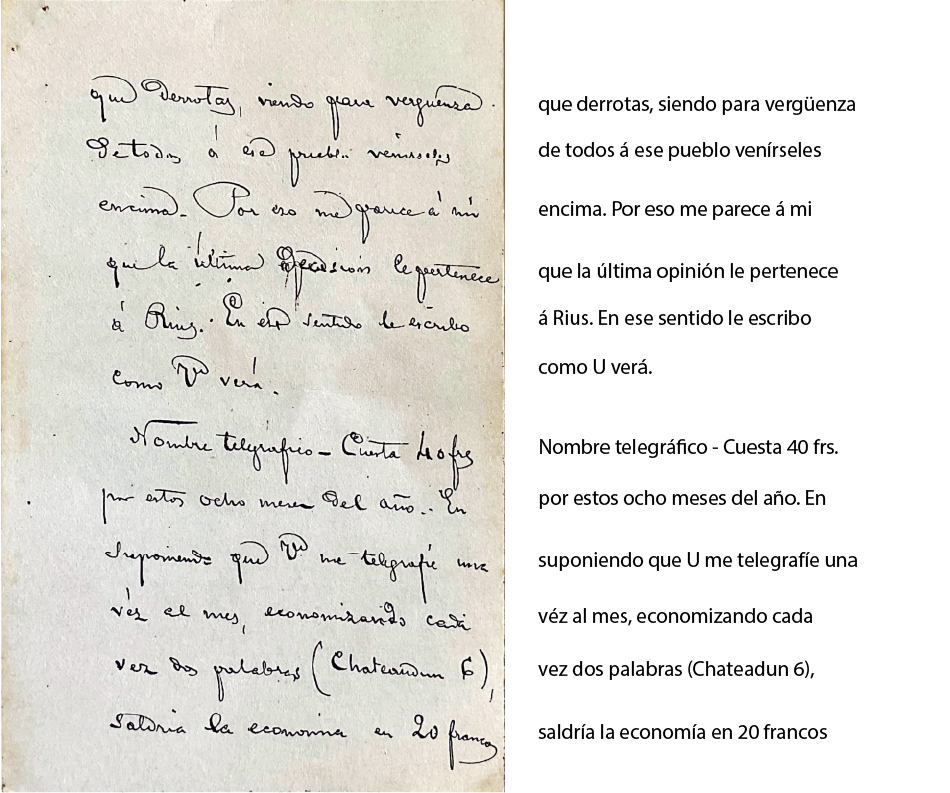 que derrotas, siendo para vergüenza
de todos á ese pueblo venírseles
encima. Por eso me parece á mi
que la última le pertenece
á Rius. En ese sentido le escribo
como Vd verá.
Nombre telegráfico - Cuesta 40 frs
por estos ocho meses del año. En
suponiendo que Vd me telegrafíe una
véz al mes, economizando cada
vez dos palabras (Chateaudun 6),
saldría la economia en 20 francos
que derrotas, siendo para vergüenza
de todos á ese pueblo venírseles
encima. Por eso me parece á mi
que la última opinión le pertenece
á Rius. En ese sentido le escribo
como U verá.
Nombre telegráfico - Cuesta 40 frs.
por estos ocho meses del año. En
suponiendo que U me telegrafíe una
véz al mes, economizando cada
vez dos palabras (Chateadun 6),
saldría la economía en 20 francos